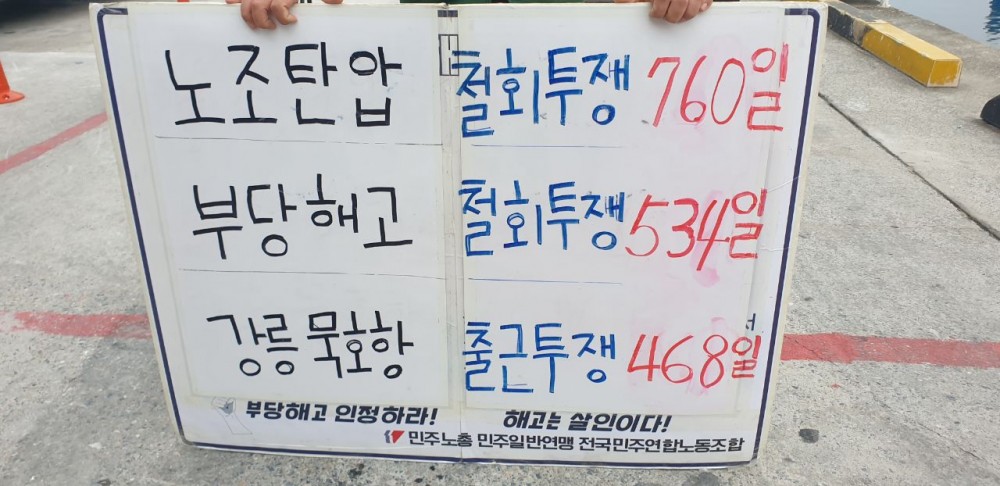 노조탄압 철회투쟁 760일
부당해고 철회투쟁 534일
강릉 묵호항 출근투쟁 468일
부당해고 인정하라! 해고는 살인이다!
민주노총 민주일반연맹 전국민주연합노동조합